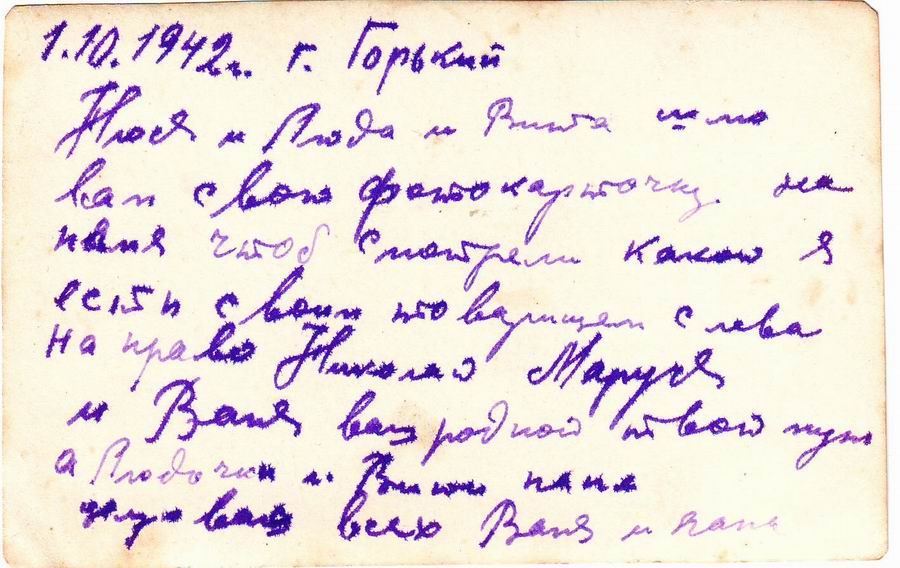 1.10.1942 г. г. Горький
Нюся и Люда и Витя шлю
вам свою фотокарточку на
меня чтоб смотрели какой я
есть с своим товарищем с лева
на право Николай Маруся
и Ваня ваш родной твой муж
а Людочки и Вити папа
целую вас всех Ваня и папа